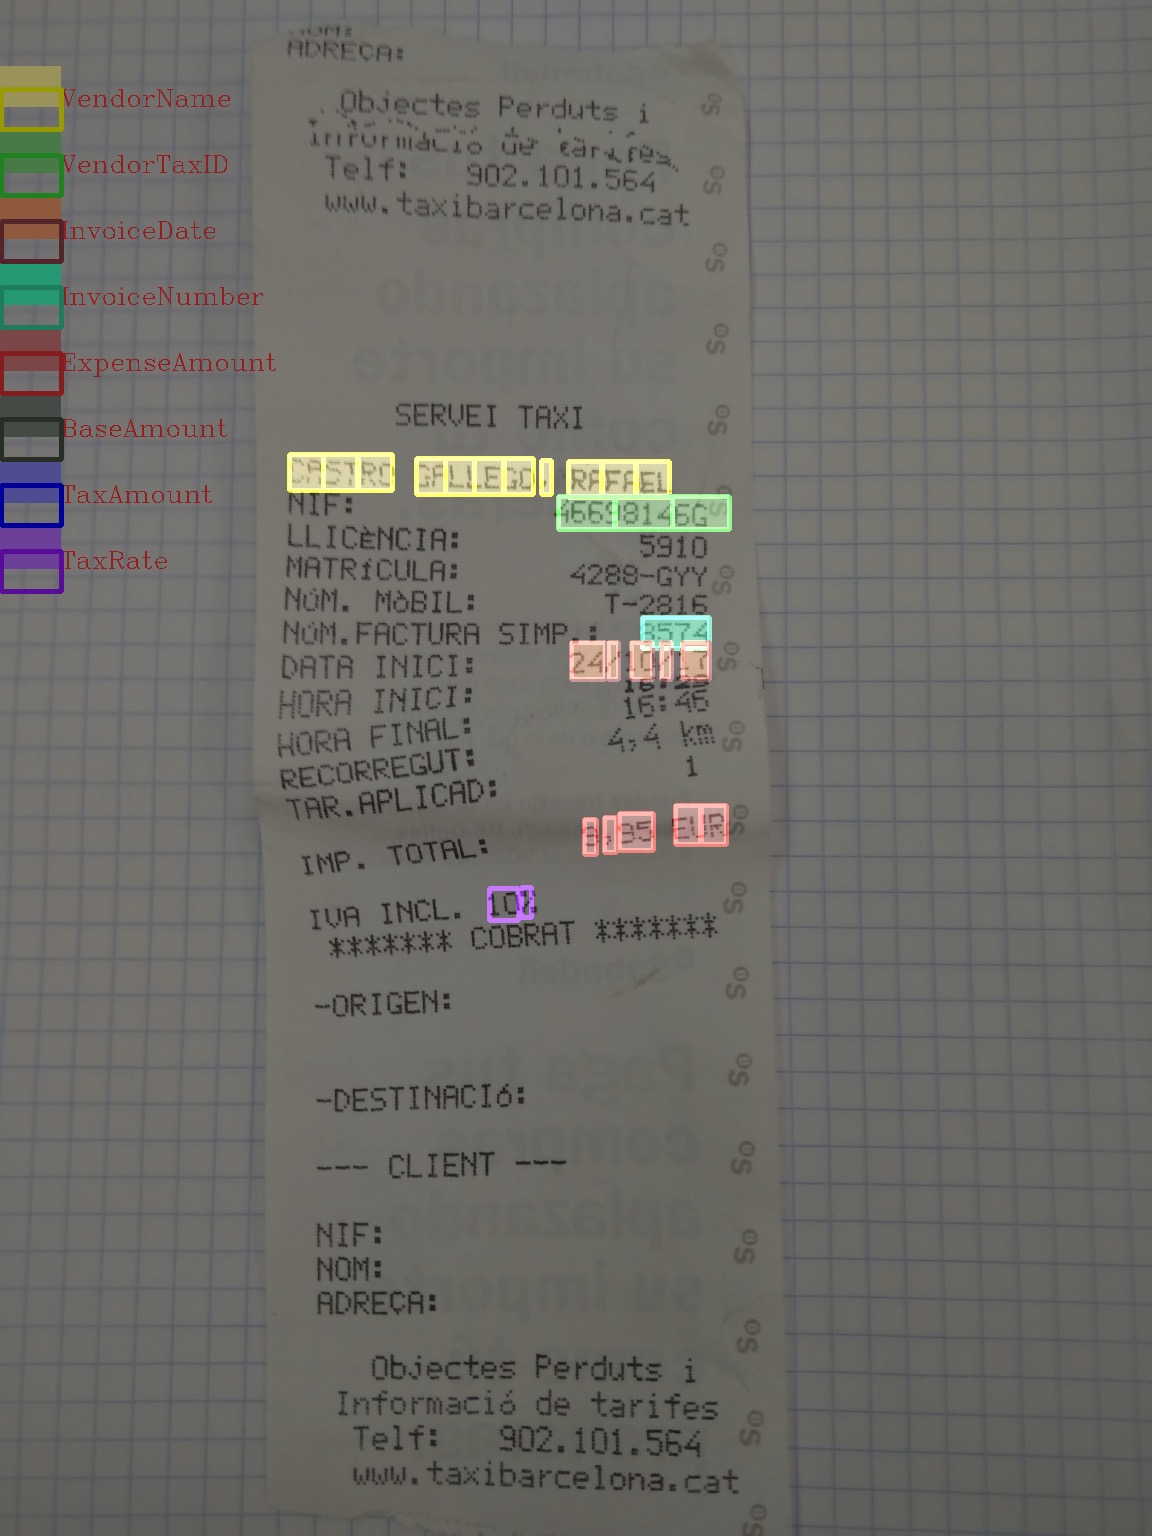 NOM:
ADREÇA:
Objectes Perduts i
Informació de tarifes
Telf: 902.101.564
www.taxibarcelona.cat
VendorName
VendorTaxID
InvoiceDate
InvoiceNumber
ExpenseAmount
BaseAmount
TaxAmount
TaxRate
SERVEI TAXI
CASTRO GALLEGO, RAFAEL
NIF: 46698146G
LLICèNCIA: 5910
MATRíCULA: 4288-GYY
NúM. MòBIL: T-2816
NúM.FACTURA SIMP.: 3574
DATA INICI: 24/10/17
HORA INICI:
HORA FINAL: 16:46
RECORREGUT: 4,4 km
TAR.APLICAD: 1
IMP. TOTAL: 8,95 EUR
IVA INCL. 10%
******* COBRAT *******
-ORIGEN:
-DESTINACIó:
--- CLIENT ---
NIF:
NOM:
ADREÇA:
Objectes Perduts i
Informació de tarifes
Telf: 902.101.564
www.taxibarcelona.cat